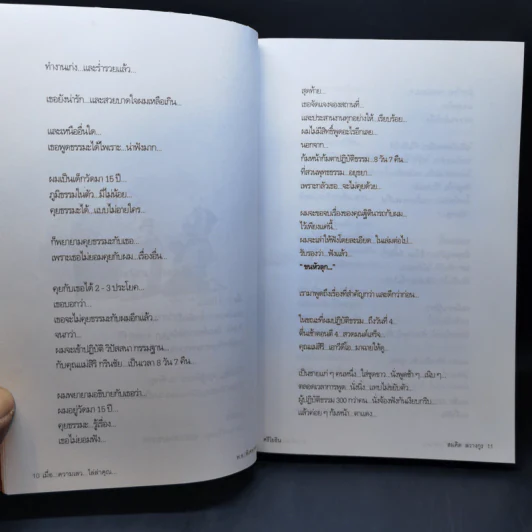 ทำงานเก่ง...และร่ำรวยแล้ว...
เธอยังน่ารัก...และสวยบาดใจผมเหลือเกิน...
และเหนืออื่นใด...
เธอพูดธรรมะได้ไพเราะ...น่าฟังมาก...
ผมเป็นเด็กวัดมา 15 ปี...
ภูมิธรรมในตัว...มีไม่น้อย...
คุยธรรมะได้...แบบไม่อายใคร...
ก็พยายามคุยธรรมะกับเธอ...
เพราะเธอไม่ยอมคุยกับผม...เรื่องอื่น...
คุยกันได้ 2 - 3 ประโยค...
เธอบอกว่า...
เธอจะไม่คุยธรรมะกับผมอีกแล้ว...
จนกว่า...
ผมจะเข้าปฏิบัติ วิปัสสนา กรรมฐาน...
กับคุณแม่สิริ กรินชัย...เป็นเวลา 8 วัน 7 คืน...
ผมพยายามอธิบายกับเธอว่า...
ผมอยู่วัดมา 15 ปี...
คุยธรรมะ...รู้เรื่อง...
เธอไม่ยอมฟัง...
10 เมื่อ...ความเลว...ไล่ล่าคุณ...
สุดท้าย...
เธอจัดแจงจองสถานที่...
และประสานงานทุกอย่างให้...เรียบร้อย...
ผมไม่มีสิทธิ์พูดอะไรอีกเลย...
นอกจาก...
ก้มหน้าก้มตาปฏิบัติธรรม...8 วัน 7 คืน...
ที่สวนพุทธธรรม...อยุธยา...
เพราะกลัวเธอ...จะไม่คุยด้วย...
ผมจะขอจบเรื่องของคุณฐิตินาถกับผม...
ไว้เพียงแค่นี้...
ผมจะเล่าให้ฟังโดยละเอียด...ในเล่มต่อไป...
รับรองว่า...ฟังแล้ว...
"ขนหัวลุก..."
เรามาพูดถึงเรื่องที่สำคัญกว่า และดีกว่าก่อน...
ในขณะที่ผมปฏิบัติธรรม...ถึงวันที่ 4...
ตื่นเช้าตอนตี 4...สวดมนต์เสร็จ...
คุณแม่สิริ...เอาวิดีโอ...มาฉายให้ดู...
เป็นชายแก่ ๆ คนหนึ่ง...ใส่ชุดขาว...นั่งพูดช้า ๆ...เนิบ ๆ...
ตลอดเวลาการพูด...นั่งนิ่ง...แทบไม่ขยับตัว...
ผู้ปฏิบัติธรรม 300 กว่าคน...นั่งจ้องฟังกันเงียบกริบ...
แล้วค่อย ๆ ก้มหน้า...ตาแดง...
สมคิด ลวางกูร 11